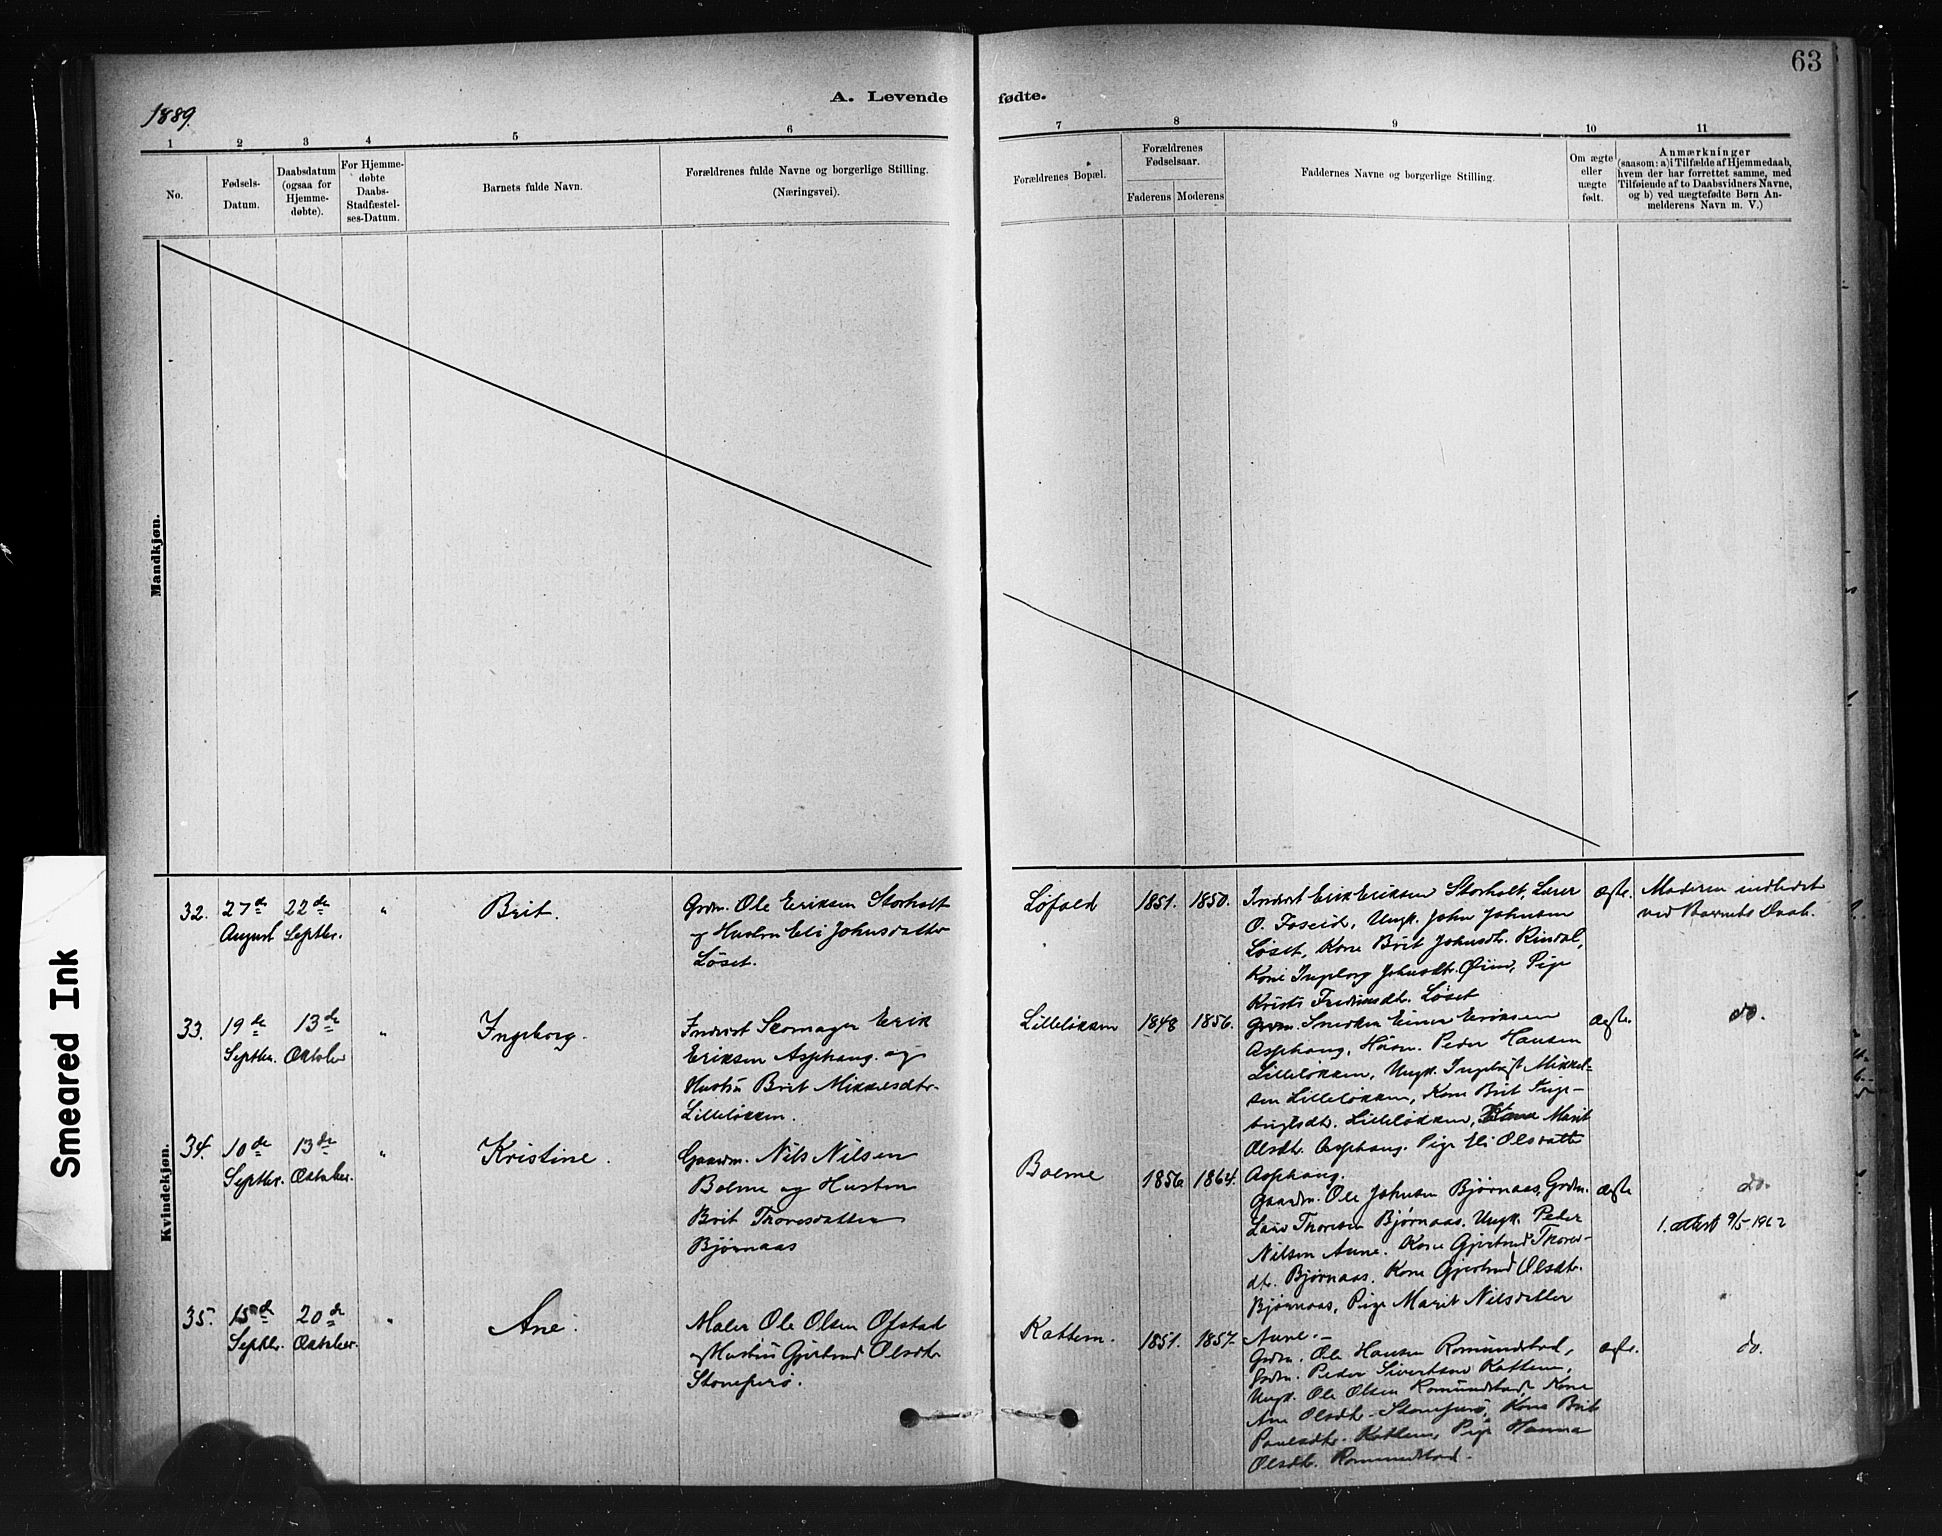 63
1889.
A. Levende fødte.
1 2 3 4 5 6 7 8 9 10 11
No.
Fødsels-
Datum.
Daabsdatum
(ogsaa for
Hjemme-
døbte).
For Hjemme-
døbte
Daabs-
Stadfæstel-
ses-Datum.
Barnets fulde Navn.
Forældrenes fulde Navne og borgerlige Stilling.
(Næringsvei).
Forældrenes Bopæl.
Forældrenes
Fødselsaar.
Faderens Moderens
Faddernes Navne og borgerlige Stilling.
Om ægte
eller
uægte
født.
Anmærkninger
(saasom: a) i Tilfælde af Hjemmedaab,
hvem der har forrettet samme, med
Tilføiende af to Daabsvidners Navne,
og b) ved uægtefødte Børn An-
melderens Navn m. V.)
Mandkjøn.
Kvindekjøn.
Smeared Ink
32.
27de
August
22de
Septbr.
"
Brit.
Grdm. Ole Eriksen Storholt
og Hustru Eli Johnsdatter
Løset.
Løfald
1851. 1850.
Inderst Erik Eriksen Storholt, Lærer
O. Foseid, Ungk. John Johnsen
Løset, Kone Brit Johnsdtr. Rindal,
Kone Ingeborg Johnsdtr. Øien, Pige
Løset
ægte.
Moderen indledet
ved Barnets Daab.
33.
19de
Septbr.
13de
Oktober
"
Ingeborg.
Inderst Skomager Erik
Eriksen Asphaug og
Hustru Brit Mikkelsdtr.
Lilleløkken.
Lilleløkken
1848 1856.
Grdm. Snedker Einer Eriksen
Asphaug, Husm. Peder Hansen
Lilleløkken, Ungk. Ingebrigt Mikkel-
sen Lilleløkken, Kone Brit Inge-
brigtsdtr. Lilleløkken, Kone Marit
Olsdtr. Asphaug, Pige Eli Olsdatter
Asphaug.
ægte.
do.
34.
10de
Septbr.
13de
Oktober.
"
Kristine.
Gaardm. Nils Nilsen
Bolme og Hustru
Brit Thoresdatter
Bjørnaas
Bolme
1856 1864.
Gaardm. Ole Johnsen Bjørnaas, Grdm.
Lars Thoresen Bjørnaas, Ungk. Peder
Nilsen Aune. Kone Gjertrud Thores-
dtr. Bjørnaas, Kone Gjertrud Olsdtr.
Bjørnaas, Pige Marit Nilsdatter
Aune.
ægte
do.
1. attest 9/5-1962
35.
15de
Septbr.
20de
Oktober.
"
Ane.
Maler Ole Olsen Ofstad
og Hustru Gjertrud Olsdtr.
Kattem.
1851. 1857.
Grdm. Ole Hansen Romundstad,
Grdm. Peder Sivertsen Kattem,
Ungk. Ole Olsen Romundstad, Kone
Ane Olsdtr. Kone Brit
Paulsdtr. Kattem, Pige Hanna
Olsdtr. Romundstad.
ægte.
do.